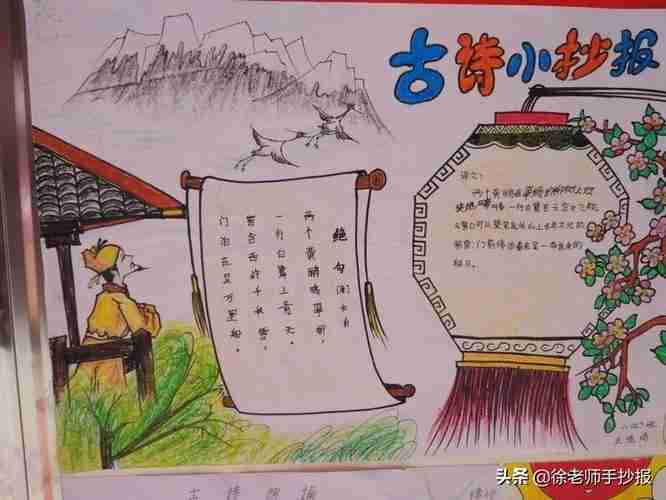 古诗小抄报
绝句
两个黄鹂鸣翠柳，
一行白鹭上青天。
窗含西岭千秋雪，
门泊东吴万里船。
译文：
两个黄鹂在翠绿的柳树上欢
一行白鹭在天空中
窗口可以望见西岭山上千年不化的
积雪，门前停泊着
船只。
古诗
头条 @徐老师手抄报